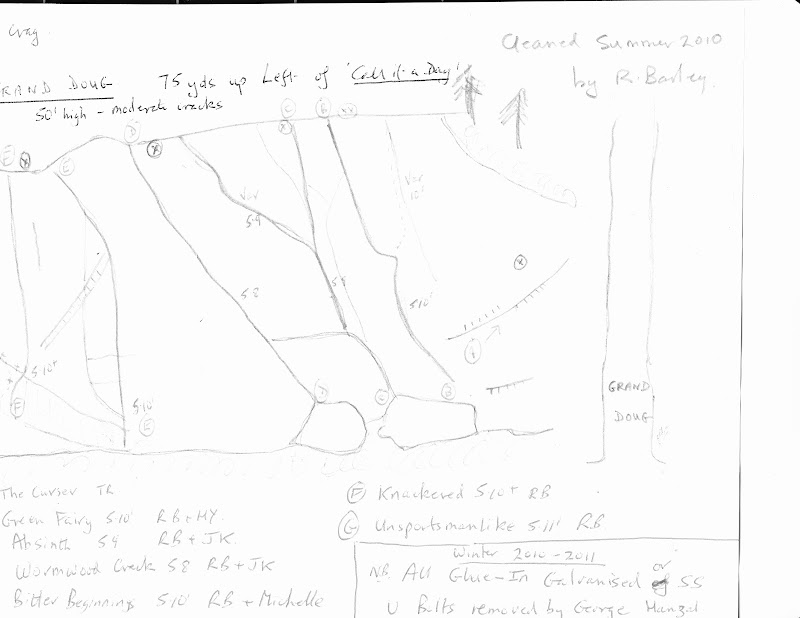 Crag
Cleaned Summer 2010
by R. Barley.
RAND DOUG 75 yds up Left of 'Call it a Day'
50' high - moderate cracks
C B
E D
E
Var
5.9
Var
10'
5.8
5.8
5.10'
A
5.10+
F
5.10'
E
D C B
GRAND
DOUG
The Curser TR
Green Fairy 5.10' RB + MY.
Absinth 5.9 RB + JK.
Wormwood Crack 5.8 RB + JK
Bitter Beginnings 5.10' RB + Michelle
F Knackered 5.10+ RB
G Unsportsmanlike 5.11' RB
Winter 2010-2011
NB. All Glue-In Galvanised or SS
U Bolts removed by George Manzal